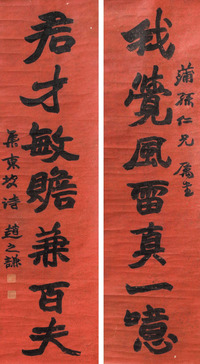 我覺風雷真一噫
蒲孫仁兄屬書
君才敏贍兼百夫
集東坡詩 趙之謙